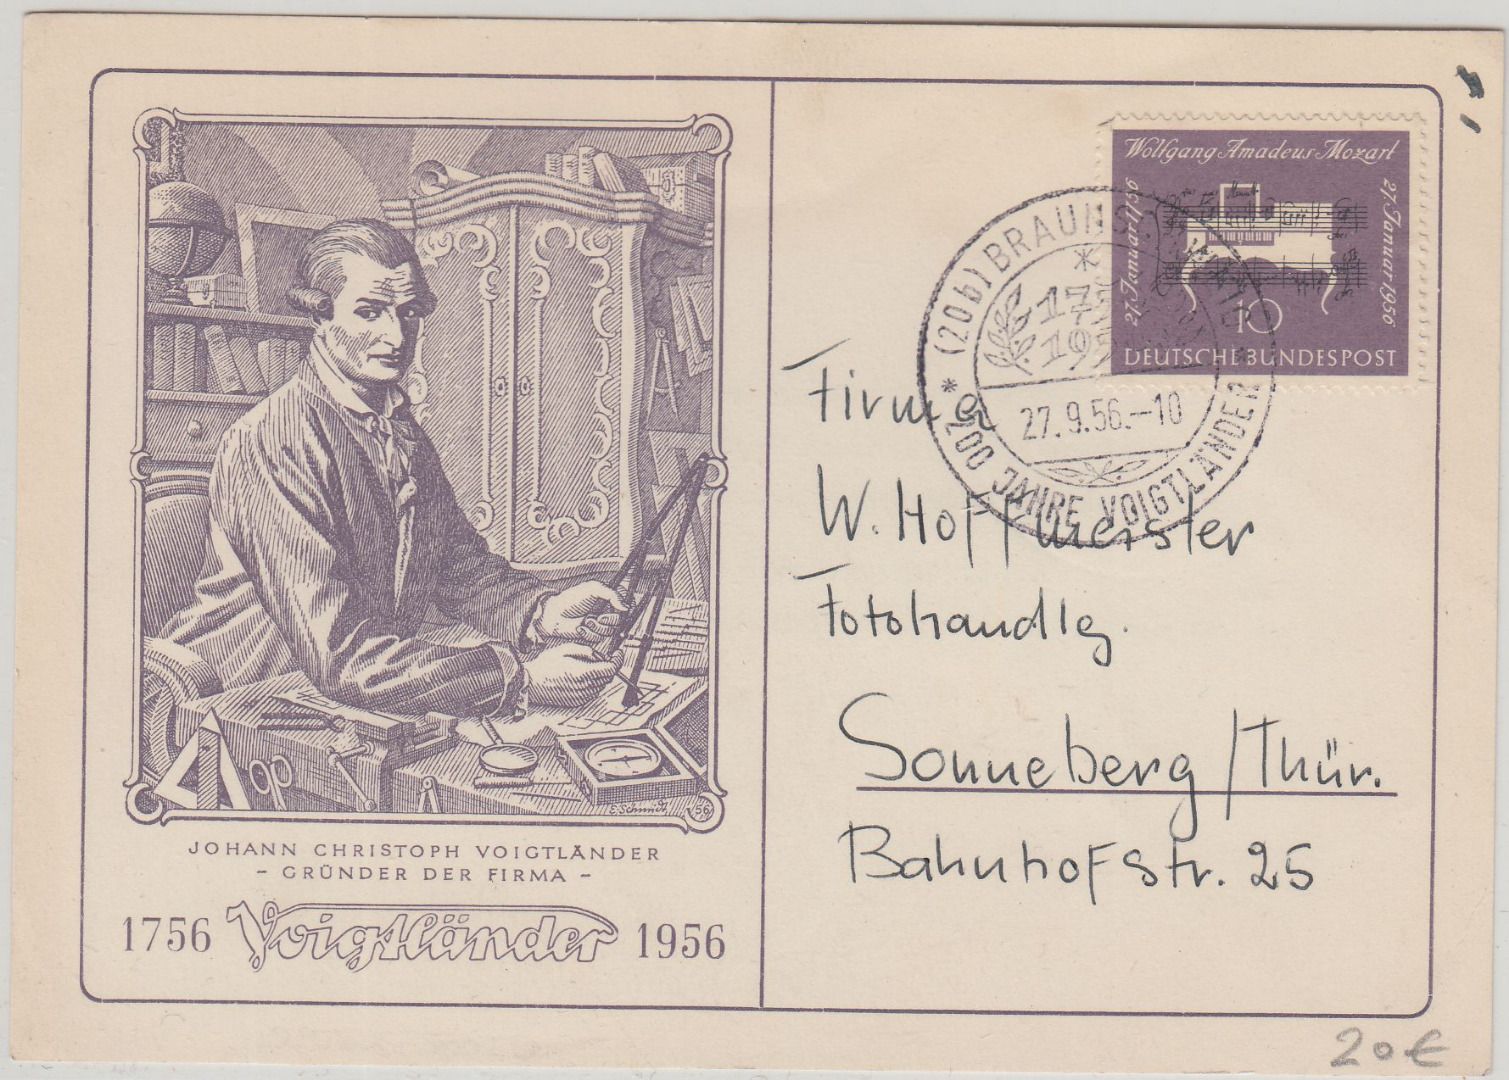 E. Schmidt 56
JOHANN CHRISTOPH VOIGTLÄNDER
- GRÜNDER DER FIRMA -
1756 Voigtländer 1956
Wolfgang Amadeus Mozart
27. Januar 1956
10
DEUTSCHE BUNDESPOST
* (20b) BRAUNSCHWEIG
27.9.56.-10
200 JAHRE VOIGTLÄNDER *
Firma
W. Hoffmeister
Fotohandlg.
Sonneberg / Thür.
Bahnhofstr. 25
20 €